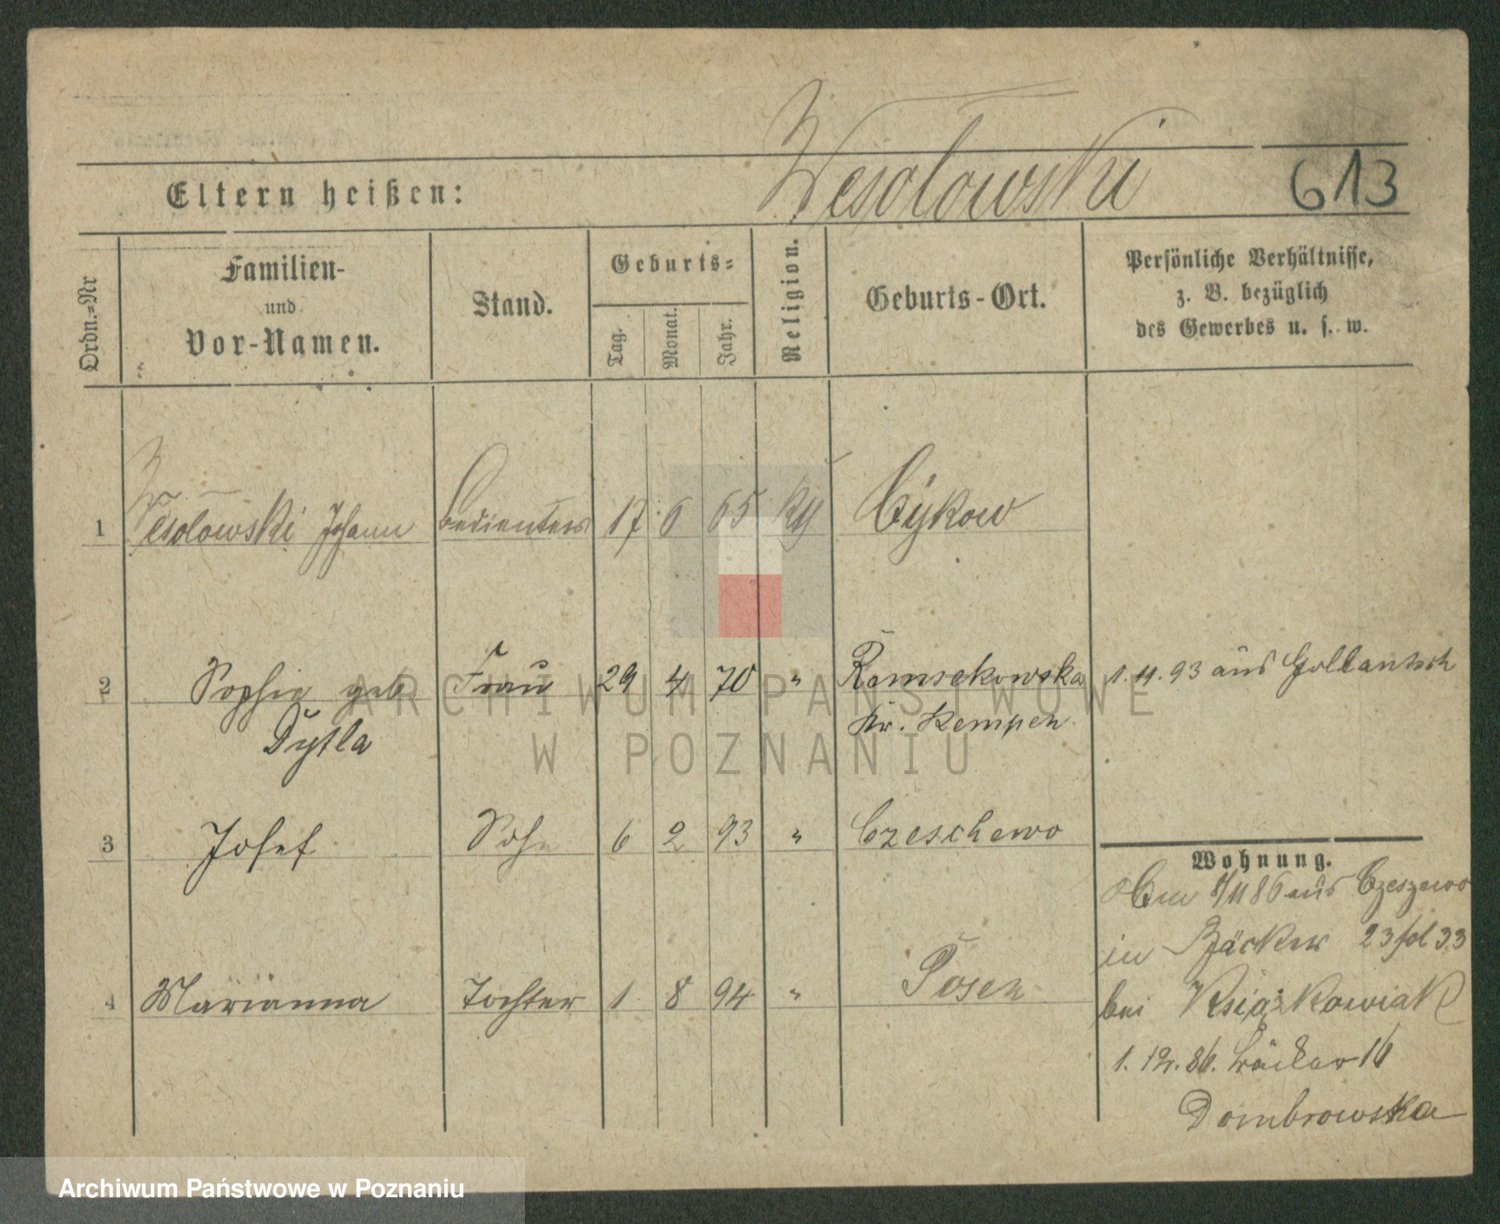 Wesołowski
613
Eltern heißen:
Ordn.=Nr
Familien-
und
Vor-Namen.
Stand.
Geburts=
Tag.
Monat.
Jahr.
Religion.
Geburts-Ort.
Persönliche Verhältnisse,
z. B. bezüglich
des Gewerbes u. s. w.
1 Wesołowski Johann 17 6 65 Cykow
2 Sophie geb Frau 29 4 70 " 1. 11. 93 aus Gollantsch
Dytla Kr. Kempen
3 Josef Sohn 6 2 93 " Czeschewo
Wohnung.
aus Czeszewo
in Bäcker 23 fol 33
4 Marianna Tochter 1 8 94 " Posen
bei Książkowiak
1. 12. 86. Bäcker 16
Dombrowska
ARCHIWUM PAŃSTWOWE
W POZNANIU
Archiwum Państwowe w Poznaniu